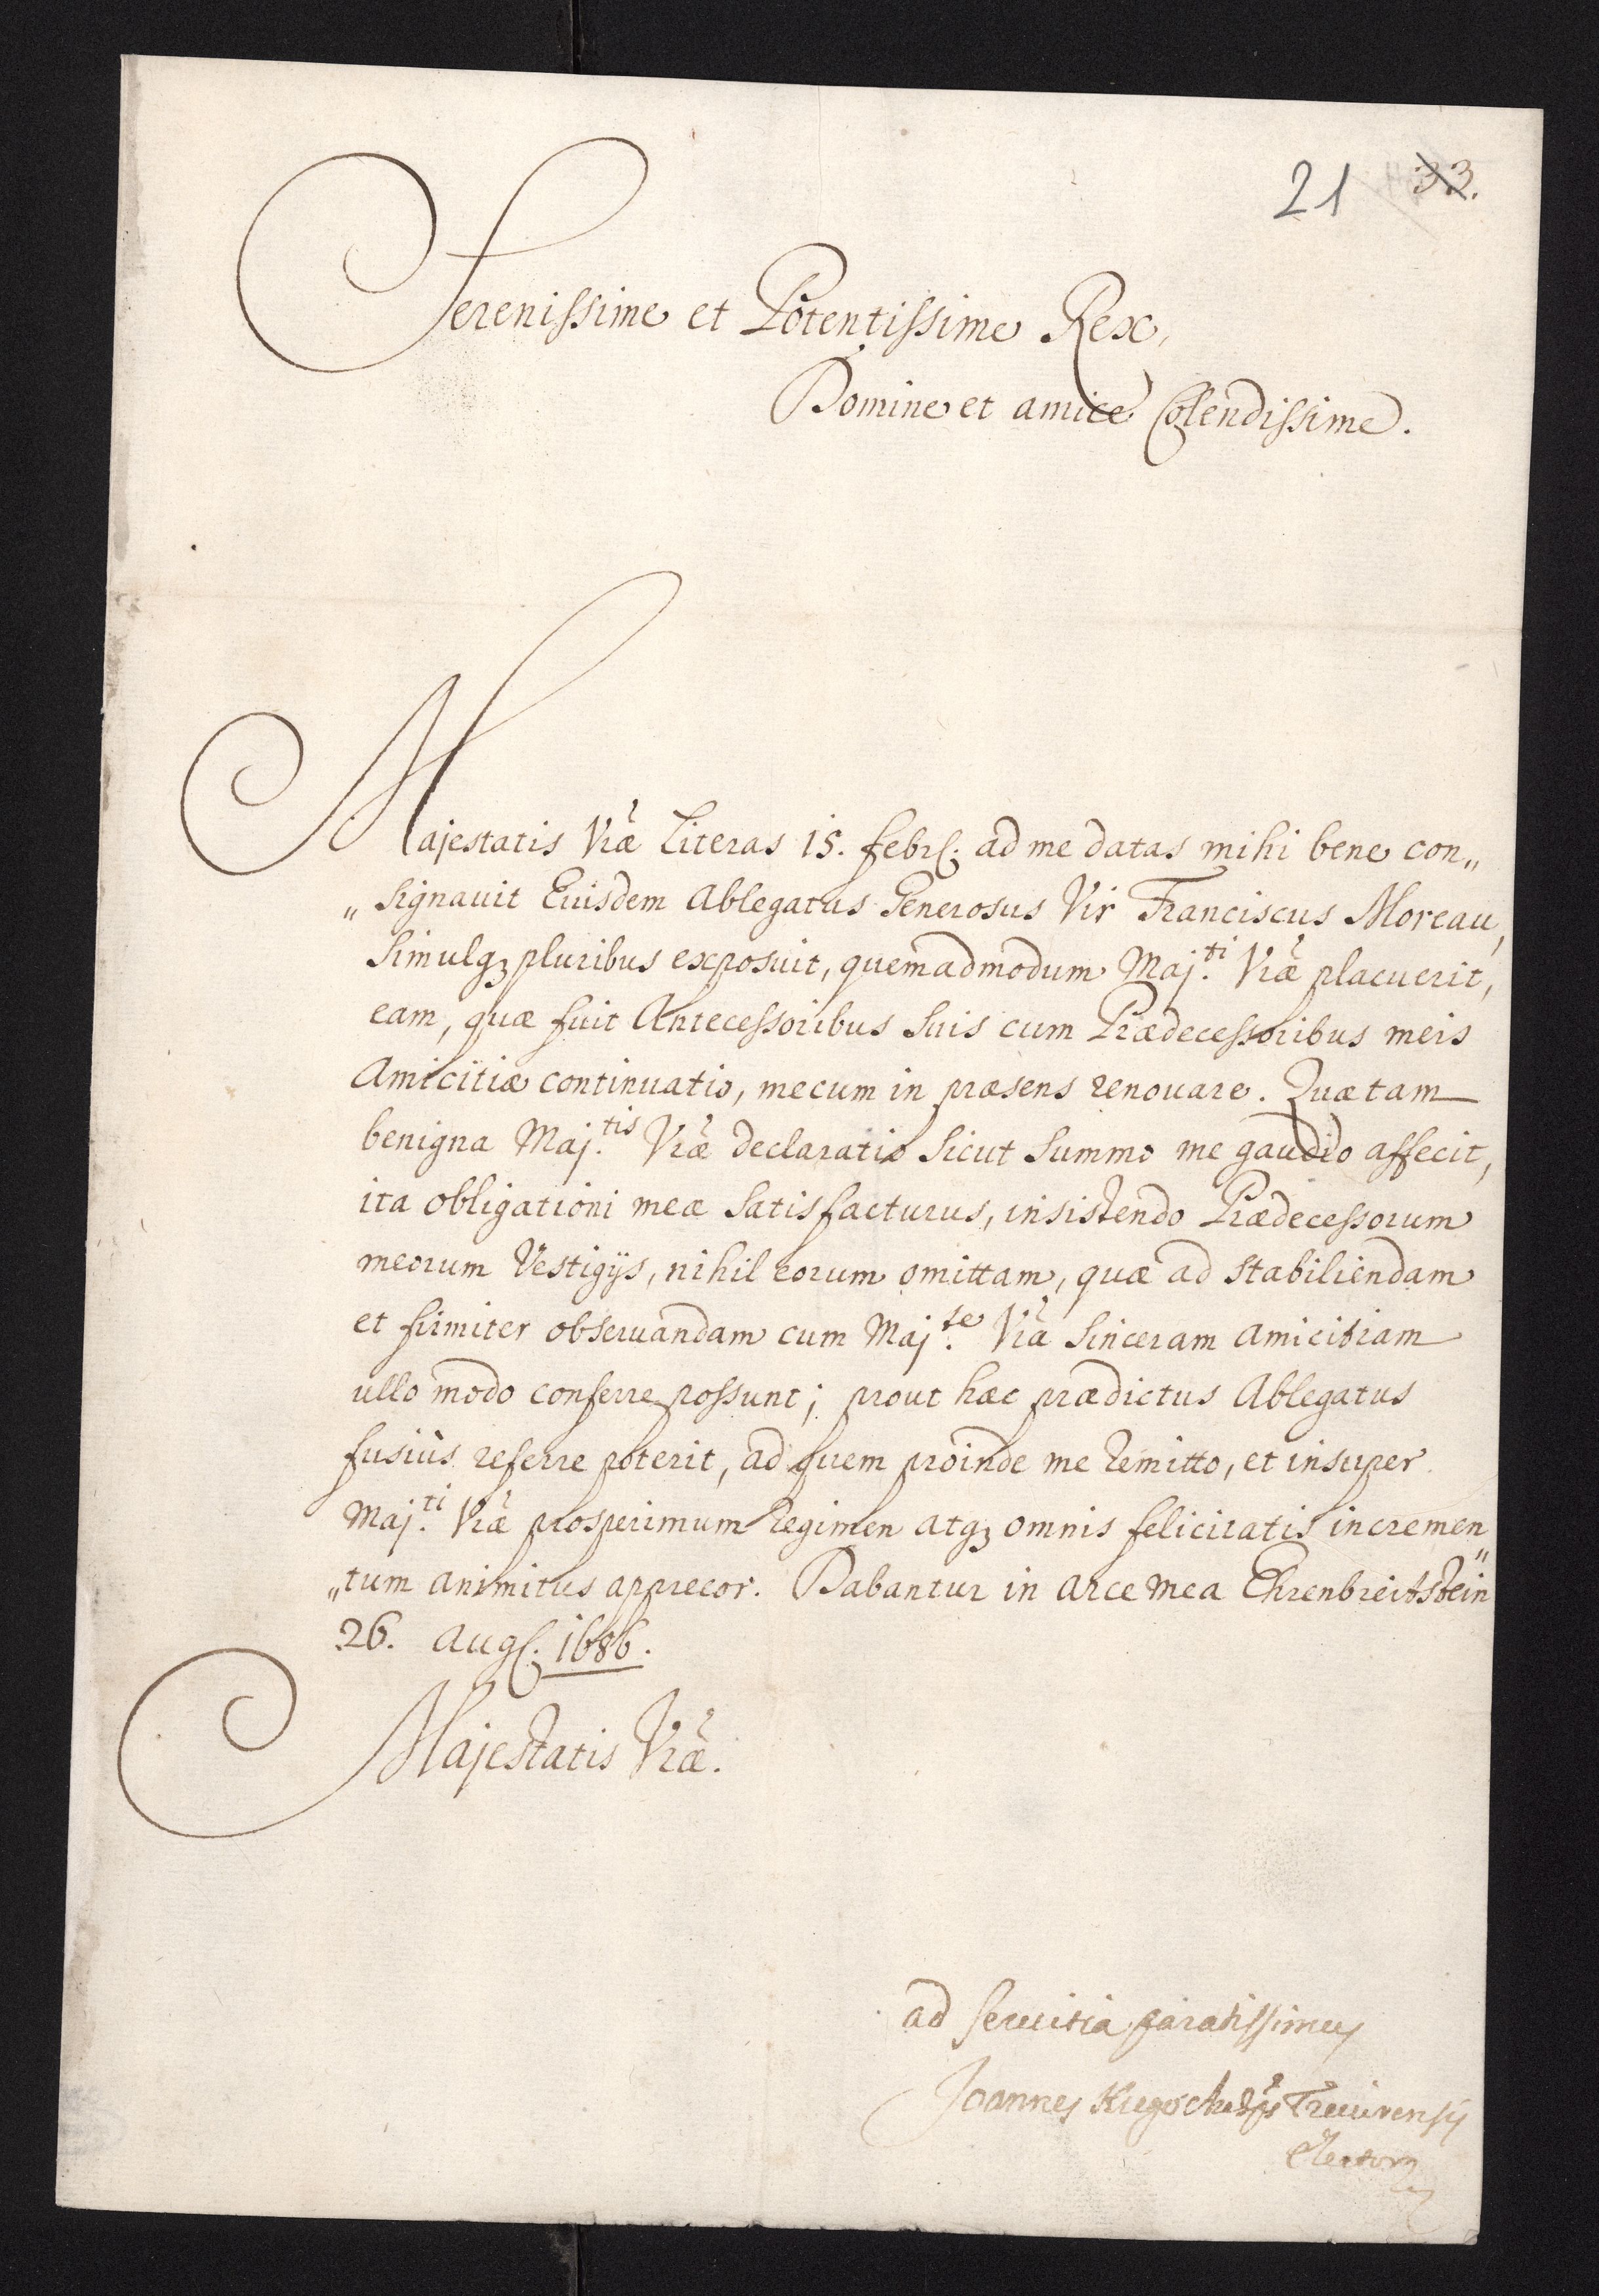 21 33.
Serenissime et Potentissime Rex,
Domine et amice Colendissime.
Majestatis Vræ Literas 15. febr. ad me datas mihi bene con„
„signavit Euisdem Ablegatus Generosus Vir Franciscus Moreau,
simulqꝫ pluribus exposuit, quemadmodum Maj.ti Vræ placuerit,
eam, quæ fuit Antecessoribus suis cum Prædecessoribus meis
Amicitiæ continuatio, mecum in præsens renouare. Quæ tam
benigna Maj.tis Vræ declaratio sicut summo me gaudio affecit,
ita obligationi meæ satisfacturus, insistendo Prædecessorum
meorum Vestigijs, nihil eorum omittam, quæ ad stabiliendam
et firmiter obseruandam cum Maj.te Vrã sinceram amicitiam
ullo modo conferre possunt; prout hæc prædictus Ablegatus
fusiùs referre poterit, ad quem proinde me remitto, et insuper
Maj.ti Vræ prosperimum Regimen atqꝫ omnis felicitatis incremen„
„tum animitus apprecor. Dabantur in arce mea Ehrenbreitstein
26. Aug. 1686.
Majestatis Vræ.
ad seruitia paratissimus
Joannes Hugo Treuirensis
Elector